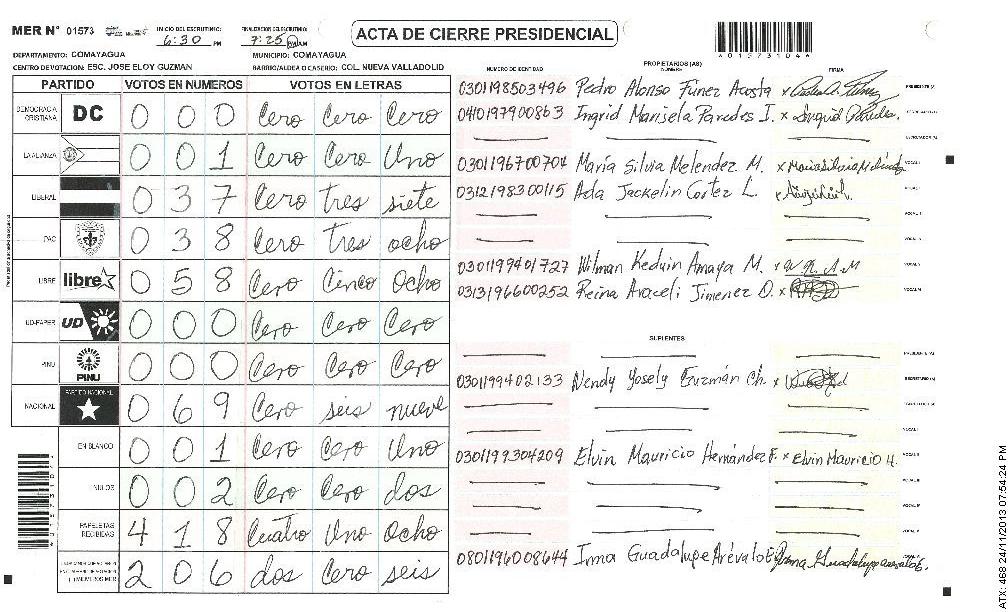 MER N° 01573
INICIO DEL ESCRUTINIO: 6:30 PM
FINALIZACION DEL ESCRUTINIO: 7:25 PM AM
ACTA DE CIERRE PRESIDENCIAL
*01573104*
DEPARTAMENTO: COMAYAGUA
MUNICIPIO: COMAYAGUA
CENTRO DE VOTACION: ESC. JOSE ELOY GUZMAN
BARRIO/ALDEA O CASERIO: COL. NUEVA VALLADOLID
PARTIDO VOTOS EN NUMEROS VOTOS EN LETRAS
DEMOCRACIA CRISTIANA DC 0 0 0 Cero Cero Cero
LA ALIANZA 0 0 1 Cero Cero Uno
LIBERAL 0 3 7 Cero tres siete
PAC 0 3 8 Cero tres ocho
LIBRE libre 0 5 8 Cero Cinco Ocho
UD-FAPER UD 0 0 0 Cero Cero Cero
PINU PINU 0 0 0 Cero Cero Cero
NACIONAL PARTIDO NACIONAL 0 6 9 Cero seis nueve
EN BLANCO 0 0 1 Cero Cero Uno
NULOS 0 0 2 Cero Cero dos
PAPELETAS RECIBIDAS 4 1 8 Cuatro Uno Ocho
2 0 6 dos Cero seis
NUMERO DE IDENTIDAD PROPIETARIOS (AS) NOMBRE FIRMA
0301198503496 Pedro Alonso Funez Acosta x PRESIDENTE (A)
0401197900863 Ingrid Marisela Paredes I. x Ingrid Paredes.
0301196700704 María Silvia Melendez M. x Maria Silvia Melendez VOCAL I
0312198300115 Ada Jackelin Cortez L. x
0301199401727 Wilman Keduin Amaya M. x W.K.A.M
0313196600252 Reina Araceli Jimenez O. x
SUPLENTES
PRESIDENTE (A)
0301199402133 Wendy Yosely Guzmán Ch. x SECRETARIO (A)
0301199304209 Elvin Mauricio Hernández F. x Elvin Mauricio H.
0801196008644 Irma Guadalupe Arévalo E. Irma Guadalupe
ATX: 468 24/11/2013 07:54:24 PM